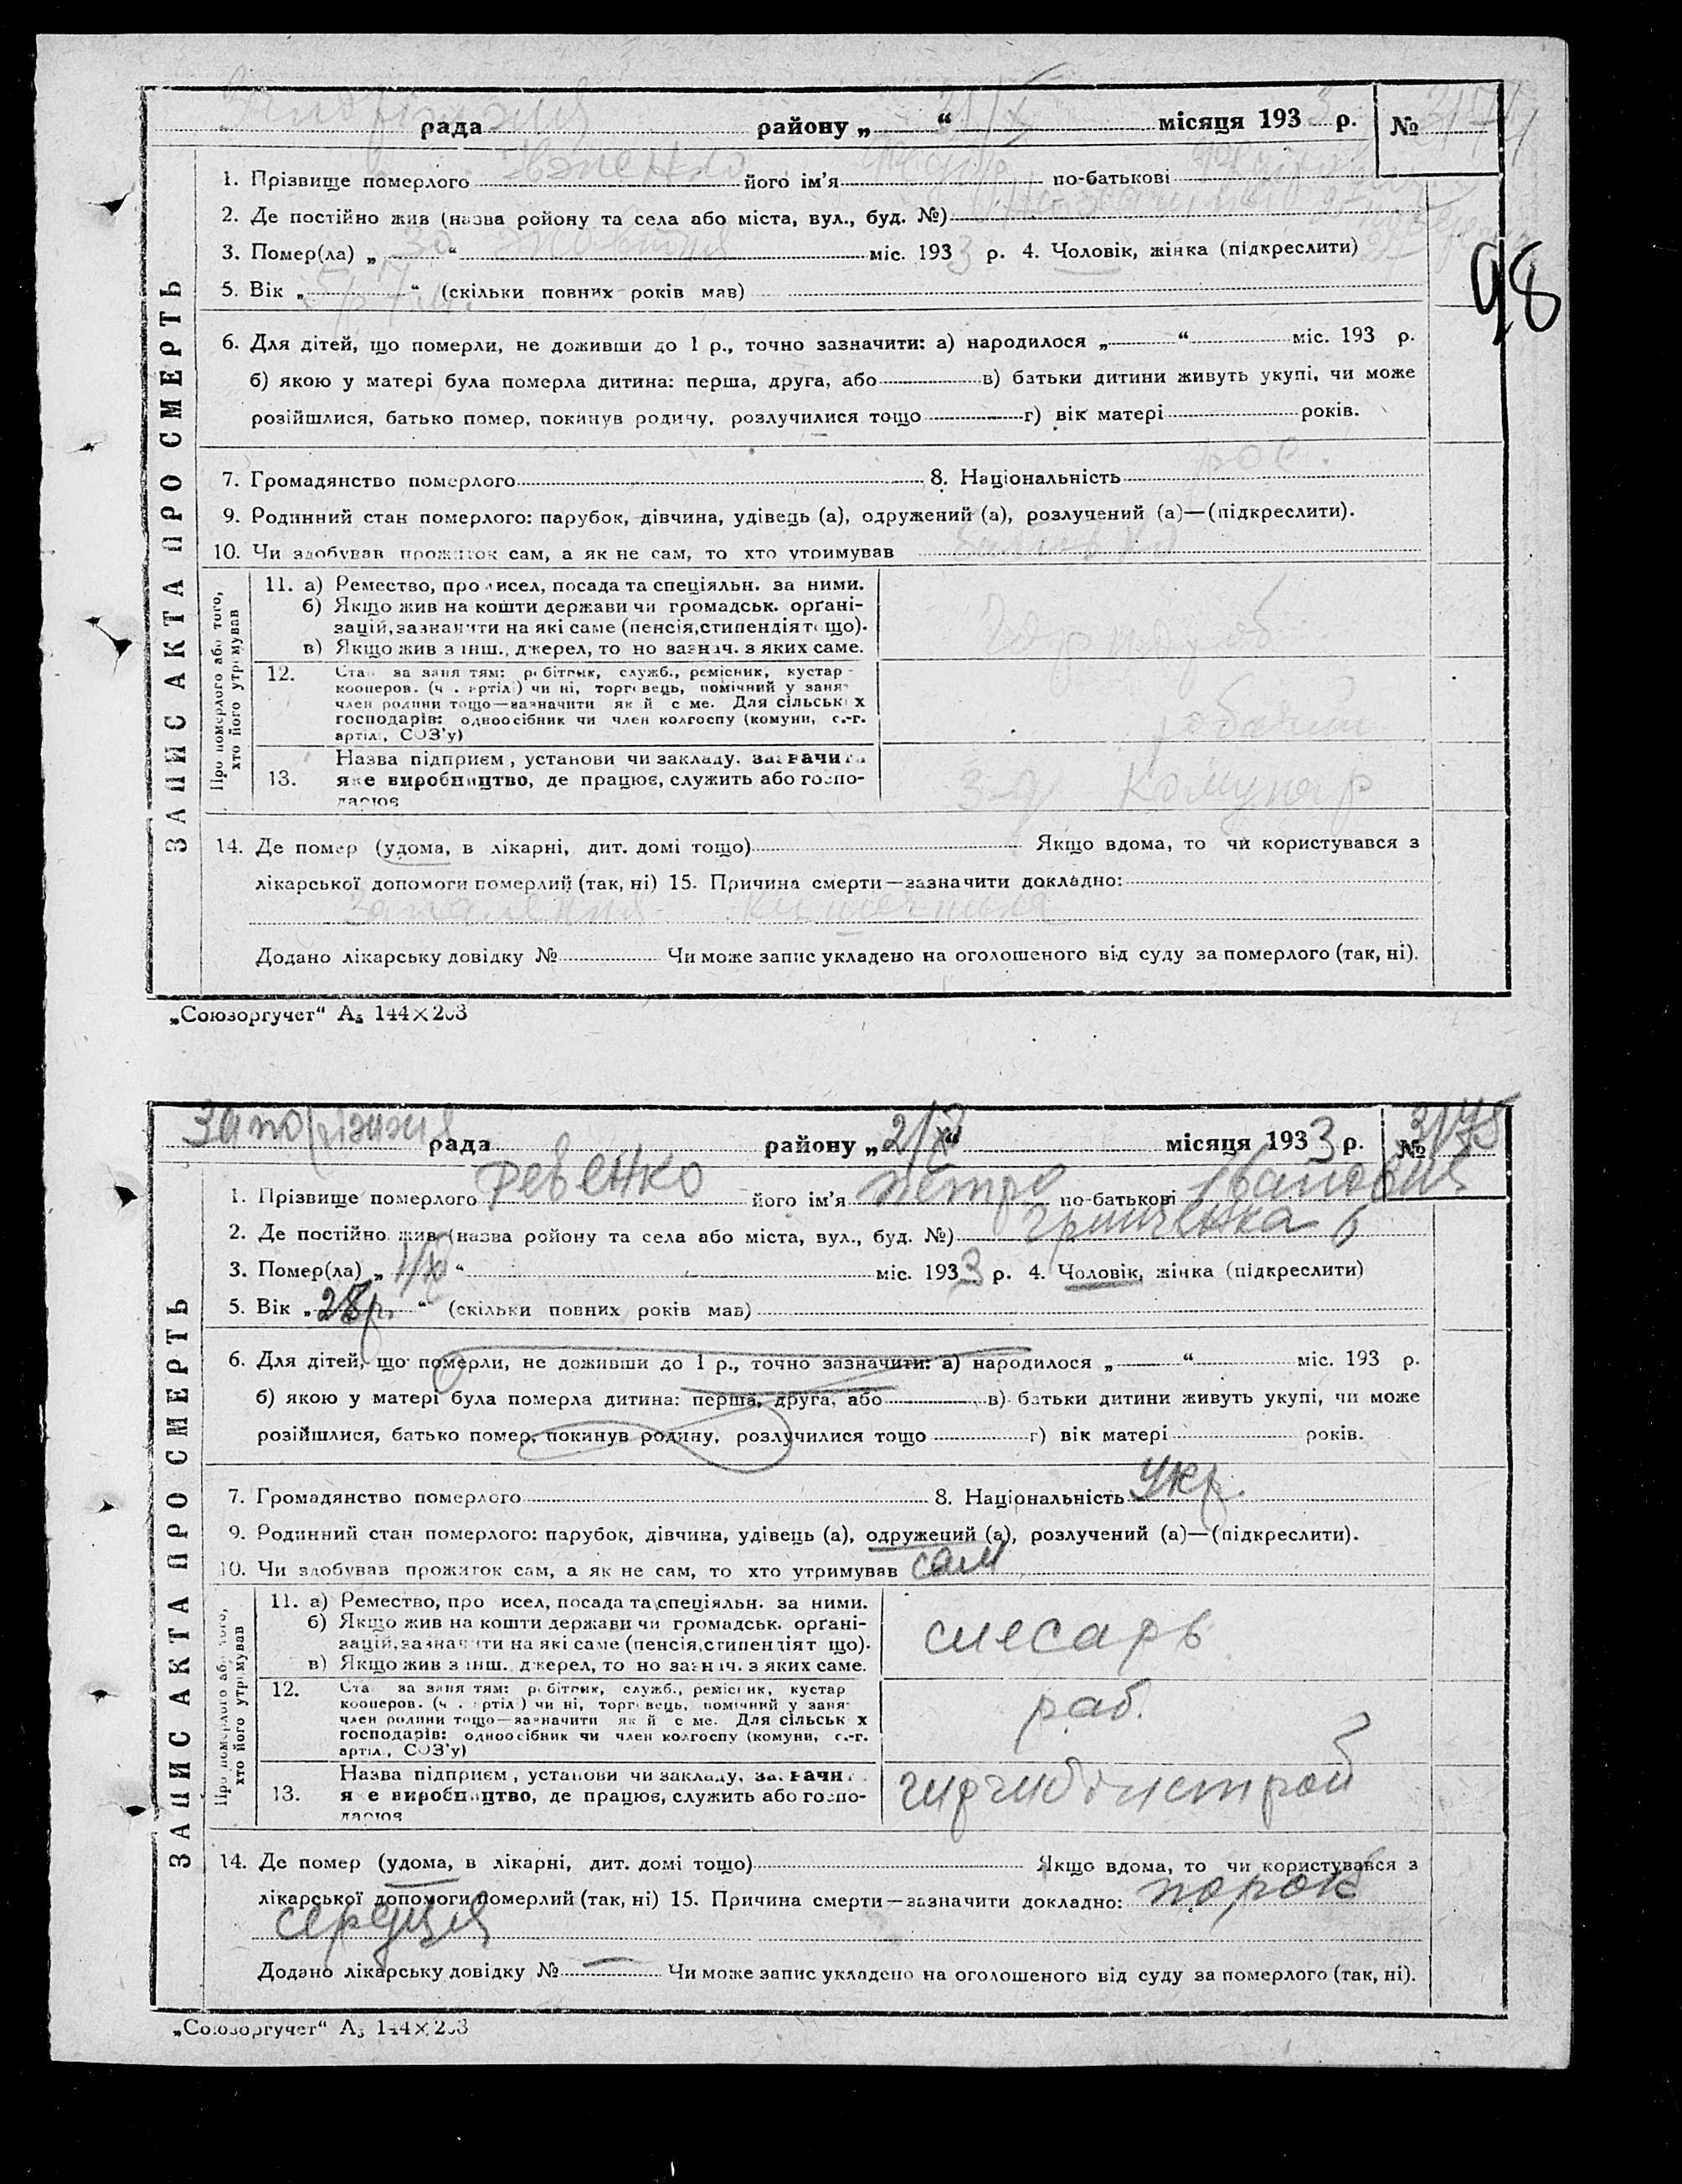 Запоріжжя рада району „ 31/X “ місяця 1933 р. № 3174
98
ЗАПИС АКТА ПРО СМЕРТЬ
1. Прізвище померлого його ім’я по-батькові
2. Де постійно жив (назва ройону та села або міста, вул., буд. №)
3. Помер(ла) „ 30 “ жовтня міс. 1933 р. 4. Чоловік, жінка (підкреслити)
5. Вік „ “ (скільки повних років мав)
6. Для дітей, що померли, не доживши до 1 р., точно зазначити: а) народилося „ “ міс. 193 р.
б) якою у матері була померла дитина: перша, друга, або в) батьки дитини живуть укупі, чи може
розійшлися, батько помер, покинув родину, розлучилися тощо г) вік матері років.
7. Громадянство померлого 8. Національність рос.
9. Родинний стан померлого: парубок, дівчина, удівець (а), одружений (а), розлучений (а)—(підкреслити).
10. Чи здобував прожиток сам, а як не сам, то хто утримував батько
Про померлого або того, хто його утримував
11. а) Ремество, про исел, посада та спеціяльн. за ними.
б) Якщо жив на кошти держави чи громадськ. орґані-
зацій, зазначити на які саме (пенсія, стипендія т що).
в) Якщо жив з інш. джерел, то но зазнач. з яких саме.
12. Ста за заня тям: р бітник, служб., ремісник, кустар
кооперов. (ч . артіл ) чи ні, торговець, помічний у заня
член родини тощо—зазначити як й с ме. Для сільськ х
господарів: одноосібник чи член колгоспу (комуни, с.-г.
артіл , СОЗ’у)
робочий
13. Назва підприєм , установи чи закладу, зазначити
яке виробництво, де працює, служить або госпо-
дарює
з-д Комунар
14. Де помер (удома, в лікарні, дит. домі тощо) Якщо вдома, то чи користувався з
лікарської допомоги померлий (так, ні) 15. Причина смерти—зазначити докладно:
запалення кишечника
Додано лікарську довідку № Чи може запис укладено на оголошеного від суду за померлого (так, ні).
„Союзоргучет“ А₅ 144×203
Запоріжжя рада району „ 2/XI “ місяця 1933 р. № 3175
ЗАПИС АКТА ПРО СМЕРТЬ
1. Прізвище померлого Ревенко його ім’я Петро по-батькові Іванович
2. Де постійно жив (назва ройону та села або міста, вул., буд. №) Грінченка 6
3. Помер(ла) „ 1/XI “ міс. 1933 р. 4. Чоловік, жінка (підкреслити)
5. Вік „ 28 р. “ (скільки повних років мав)
6. Для дітей, що померли, не доживши до 1 р., точно зазначити: а) народилося „ “ міс. 193 р.
б) якою у матері була померла дитина: перша, друга, або в) батьки дитини живуть укупі, чи може
розійшлися, батько помер, покинув родину, розлучилися тощо г) вік матері років.
7. Громадянство померлого 8. Національність Укр.
9. Родинний стан померлого: парубок, дівчина, удівець (а), одружений (а), розлучений (а)—(підкреслити).
10. Чи здобував прожиток сам, а як не сам, то хто утримував сам
Про померлого або того, хто його утримував
11. а) Ремество, про исел, посада та спеціяльн. за ними.
б) Якщо жив на кошти держави чи громадськ. орґані-
зацій, зазначити на які саме (пенсія, стипендія т що).
в) Якщо жив з інш. джерел, то но зазнач. з яких саме.
слесарь
12. Ста за заня тям: р бітник, служб., ремісник, кустар
кооперов. (ч . артіл ) чи ні, торговець, помічний у заня
член родини тощо—зазначити як й с ме. Для сільськ х
господарів: одноосібник чи член колгоспу (комуни, с.-г.
артіл., СОЗ’у)
раб.
13. Назва підприєм , установи чи закладу, зазначит
я е виробництво, де працює, служить або госпо-
дарює
14. Де помер (удома, в лікарні, дит. домі тощо) Якщо вдома, то чи користувався з
лікарської допомоги померлий (так, ні) 15. Причина смерти—зазначити докладно: порок
сердця
Додано лікарську довідку № — Чи може запис укладено на оголошеного від суду за померлого (так, ні).
„Союзоргучет“ А₅ 144×203